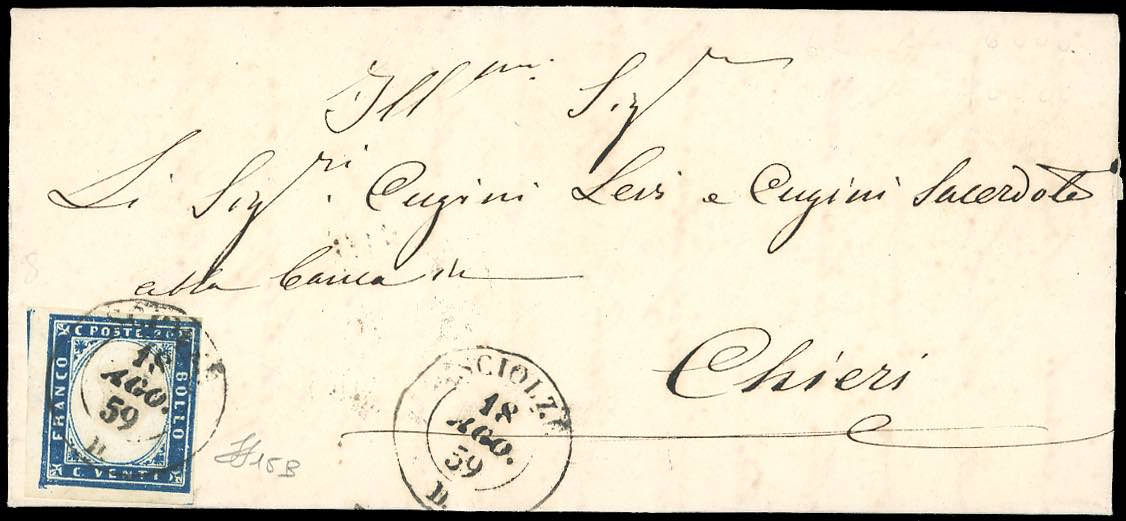 Ill.mi Sig.ri
Li Sig.ri Cugini Levi e Cugini Sacerdote
alla Banca in
Chieri
C. POSTE. 20
FRANCO
BOLLO
C. VENTI
18
AGO.
59
D.
SCIOLZE
18
AGO.
59
D.
15B